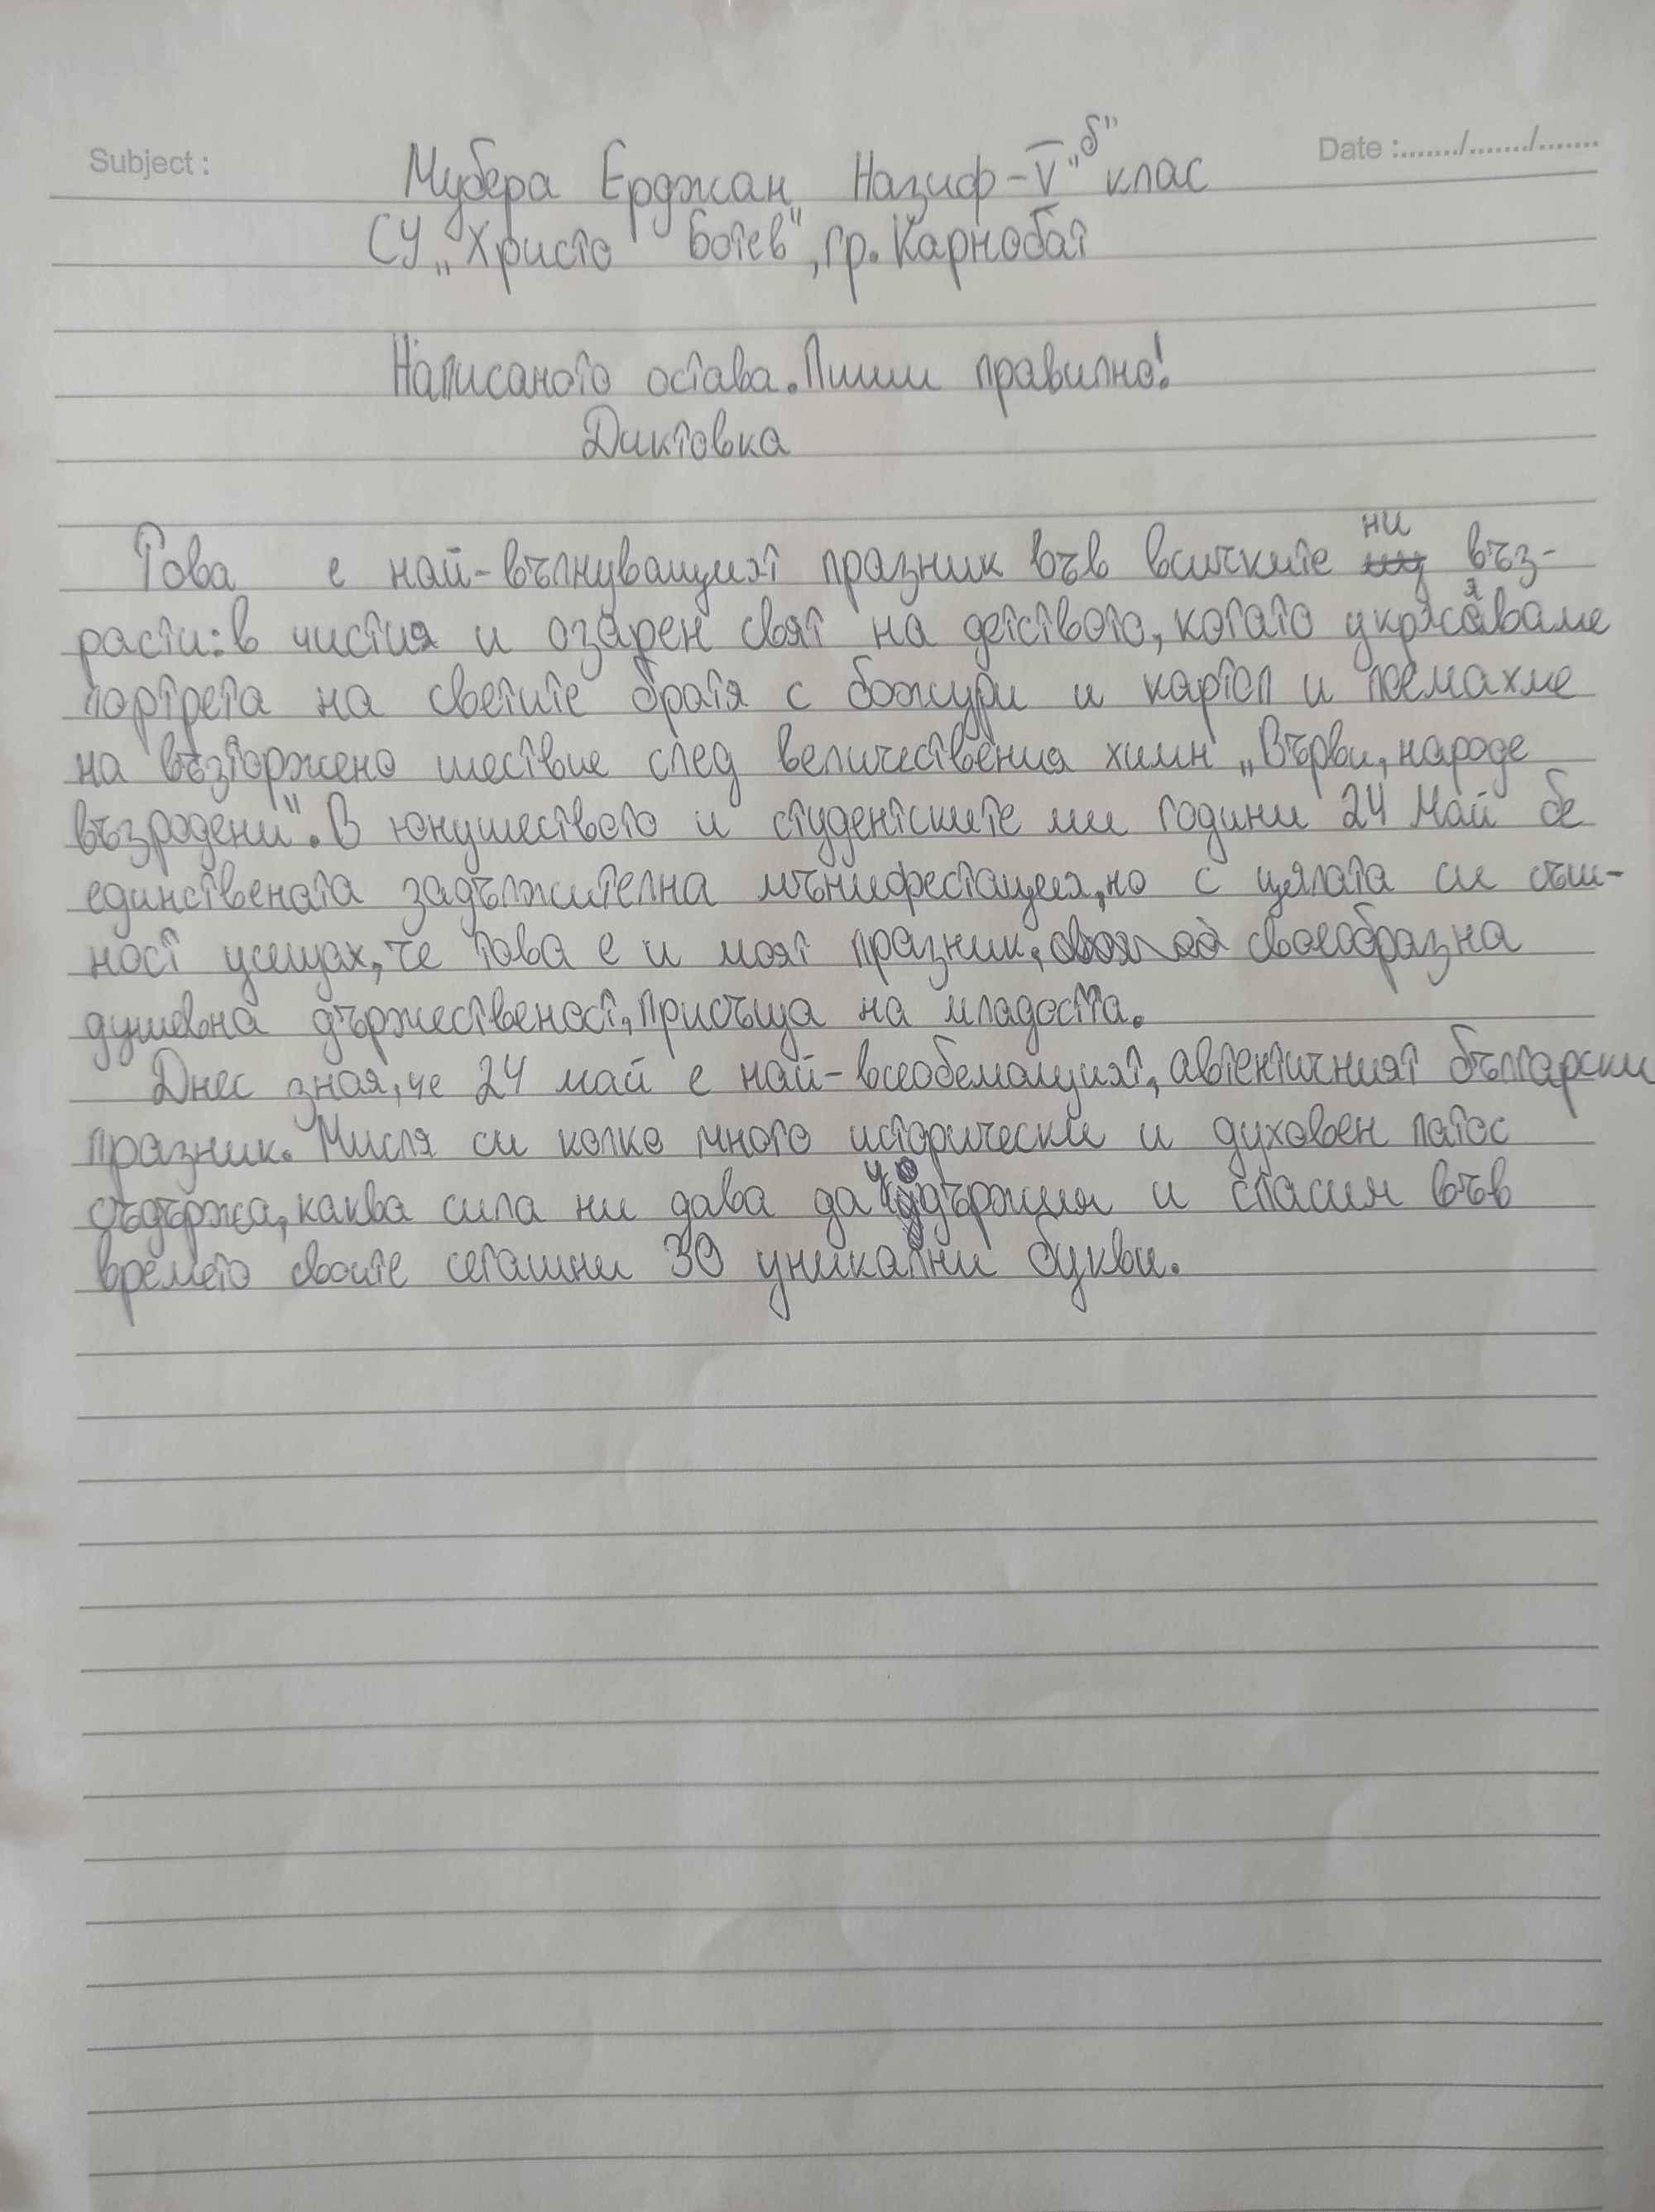 Subject :
Date :......../......../........
Мубера Ерджан Назиф - V "б" клас
СУ „Христо Ботев", гр. Карнобат
Написаното остава. Пиши правилно!
Диктовка
Това е най-вълнуващият празник във всичките ни въз-
расти: в чистия и озарен свят на детството, когато укрсяваме
портрета на светите братя с божури и картоп и поемахме
на възторжено шествие след величествения химн „Върви, народе
възродени". В юнушеството и студентските ми години 24 Май бе
единствената задължителна мънифестация, но с цялата си същ-
ност усещах, че това е и моят празник, своеобразна
душевна държественост, присъща на младостта.
Днес зная, че 24 май е най-всеобемащият, автентичният български
празник. Мисля си колко много исторически и духовен патос
съдържа, каква сила ни дава да удържим и спасим във
времето своите сегашни 30 уникални букви.